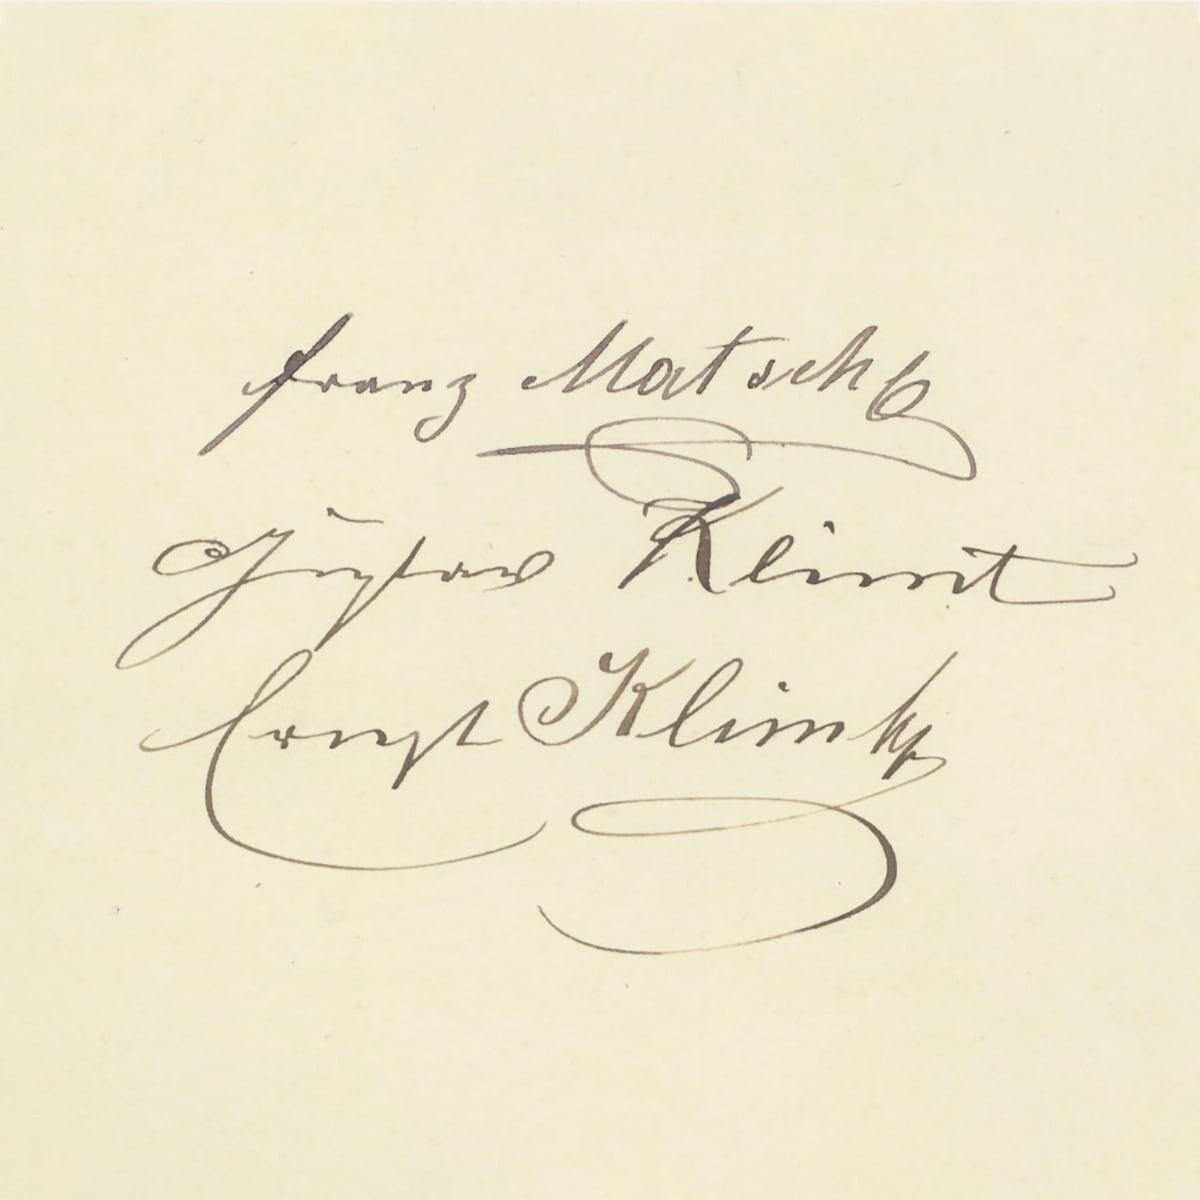 Franz Matsch
Gustav Klimt
Ernst Klimt